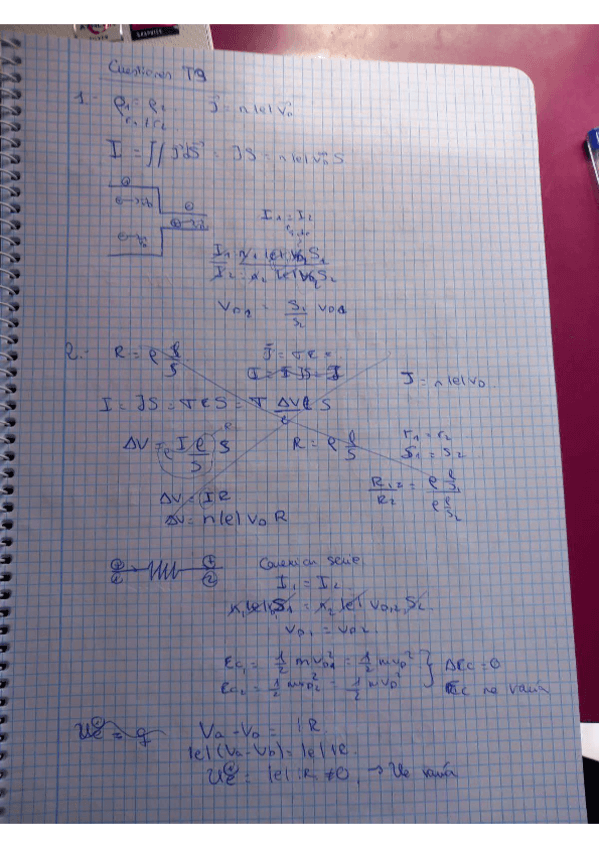 Cuestiones T9
1.- ρ₁ = ρ₂ J⃗ = n|e|v⃗₀
r₁ ≠ r₂
I = ∫∫ J⃗ dS⃗ = JS = n|e|v⃗₀ S
I₁ = I₂
I₁ = n₁ |e| v₀₁ S₁
I₂ = n₂ |e| v₀₂ S₂
v₀₂ = S₁/S₂ v₀₁
2.- R = ρ l/S
J = n|e|v₀
I = JS = σES = σ ΔV/l S
ΔV = ρ I l/S R = ρ l/S r₁ = r₂
S₁ = S₂
R₁/R₂ = ρ l/S₁ / ρ l/S₂
ΔV = IR
ΔV = n|e| v₀ R
Conexión serie
I₁ = I₂
n₁|e|v₀₁ S₁ = n₂ |e| v₀₂ S₂
v₀₁ = v₀₂
Ec₁ = 1/2 m v₀₁² = 1/2 m v₀² } ΔEc = 0
Ec₂ = 1/2 m v₀₂² = 1/2 m v₀² } Ec no varía
Ue = q Va - Vb = IR
|e|(Va - Vb) = |e| IR
Ue = |e| IR ≠ 0, → Ue varía